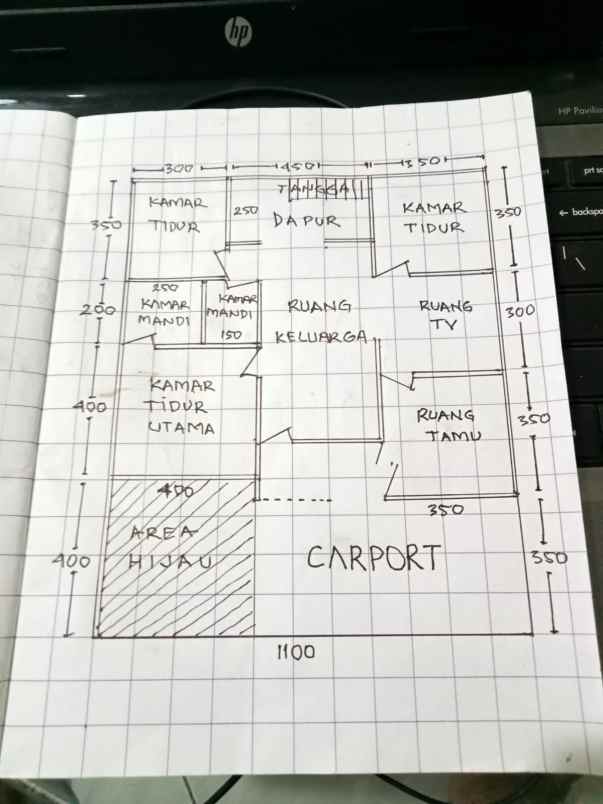 hp
HP Pavilion
prt sc
← backspa
300
450
350
KAMAR
TIDUR
TANGGA
250
DAPUR
KAMAR
TIDUR
350
350
250
KAMAR
MANDI
KAMAR
MANDI
150
200
RUANG
KELUARGA
RUANG
TV
300
KAMAR
TIDUR
UTAMA
400
RUANG
TAMU
350
400
350
AREA
HIJAU
400
CARPORT
350
1100